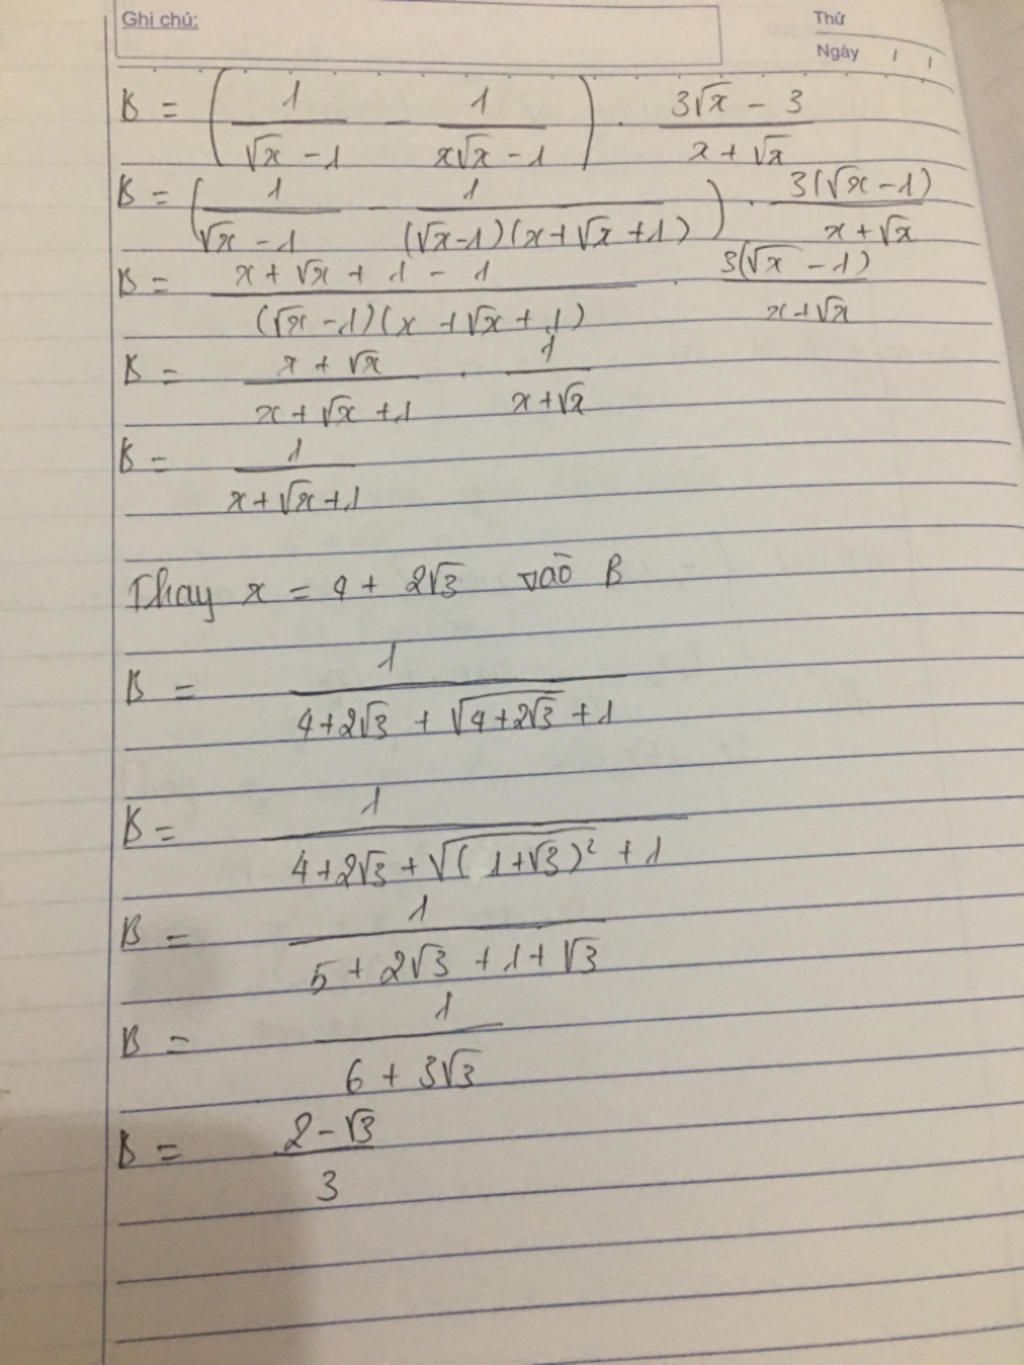 Ghi chú:
Thứ
Ngày / /
B = (1/(√x − 1) − 1/(x√x − 1)) · (3√x − 3)/(x + √x)
B = (1/(√x − 1) − 1/((√x−1)(x+√x+1))) · 3(√x−1)/(x+√x)
B = (x + √x + 1 − 1)/((√x−1)(x+√x+1)) · 3(√x−1)/(x+√x)
B = (x + √x)/(x+√x+1) · 1/(x+√x)
B = 1/(x+√x+1)
Thay x = 4 + 2√3 vào B
B = 1/(4+2√3 + √(4+2√3) + 1)
B = 1/(4+2√3 + √((1+√3)²) + 1)
B = 1/(5 + 2√3 + 1 + √3)
B = 1/(6 + 3√3)
B = (2−√3)/3